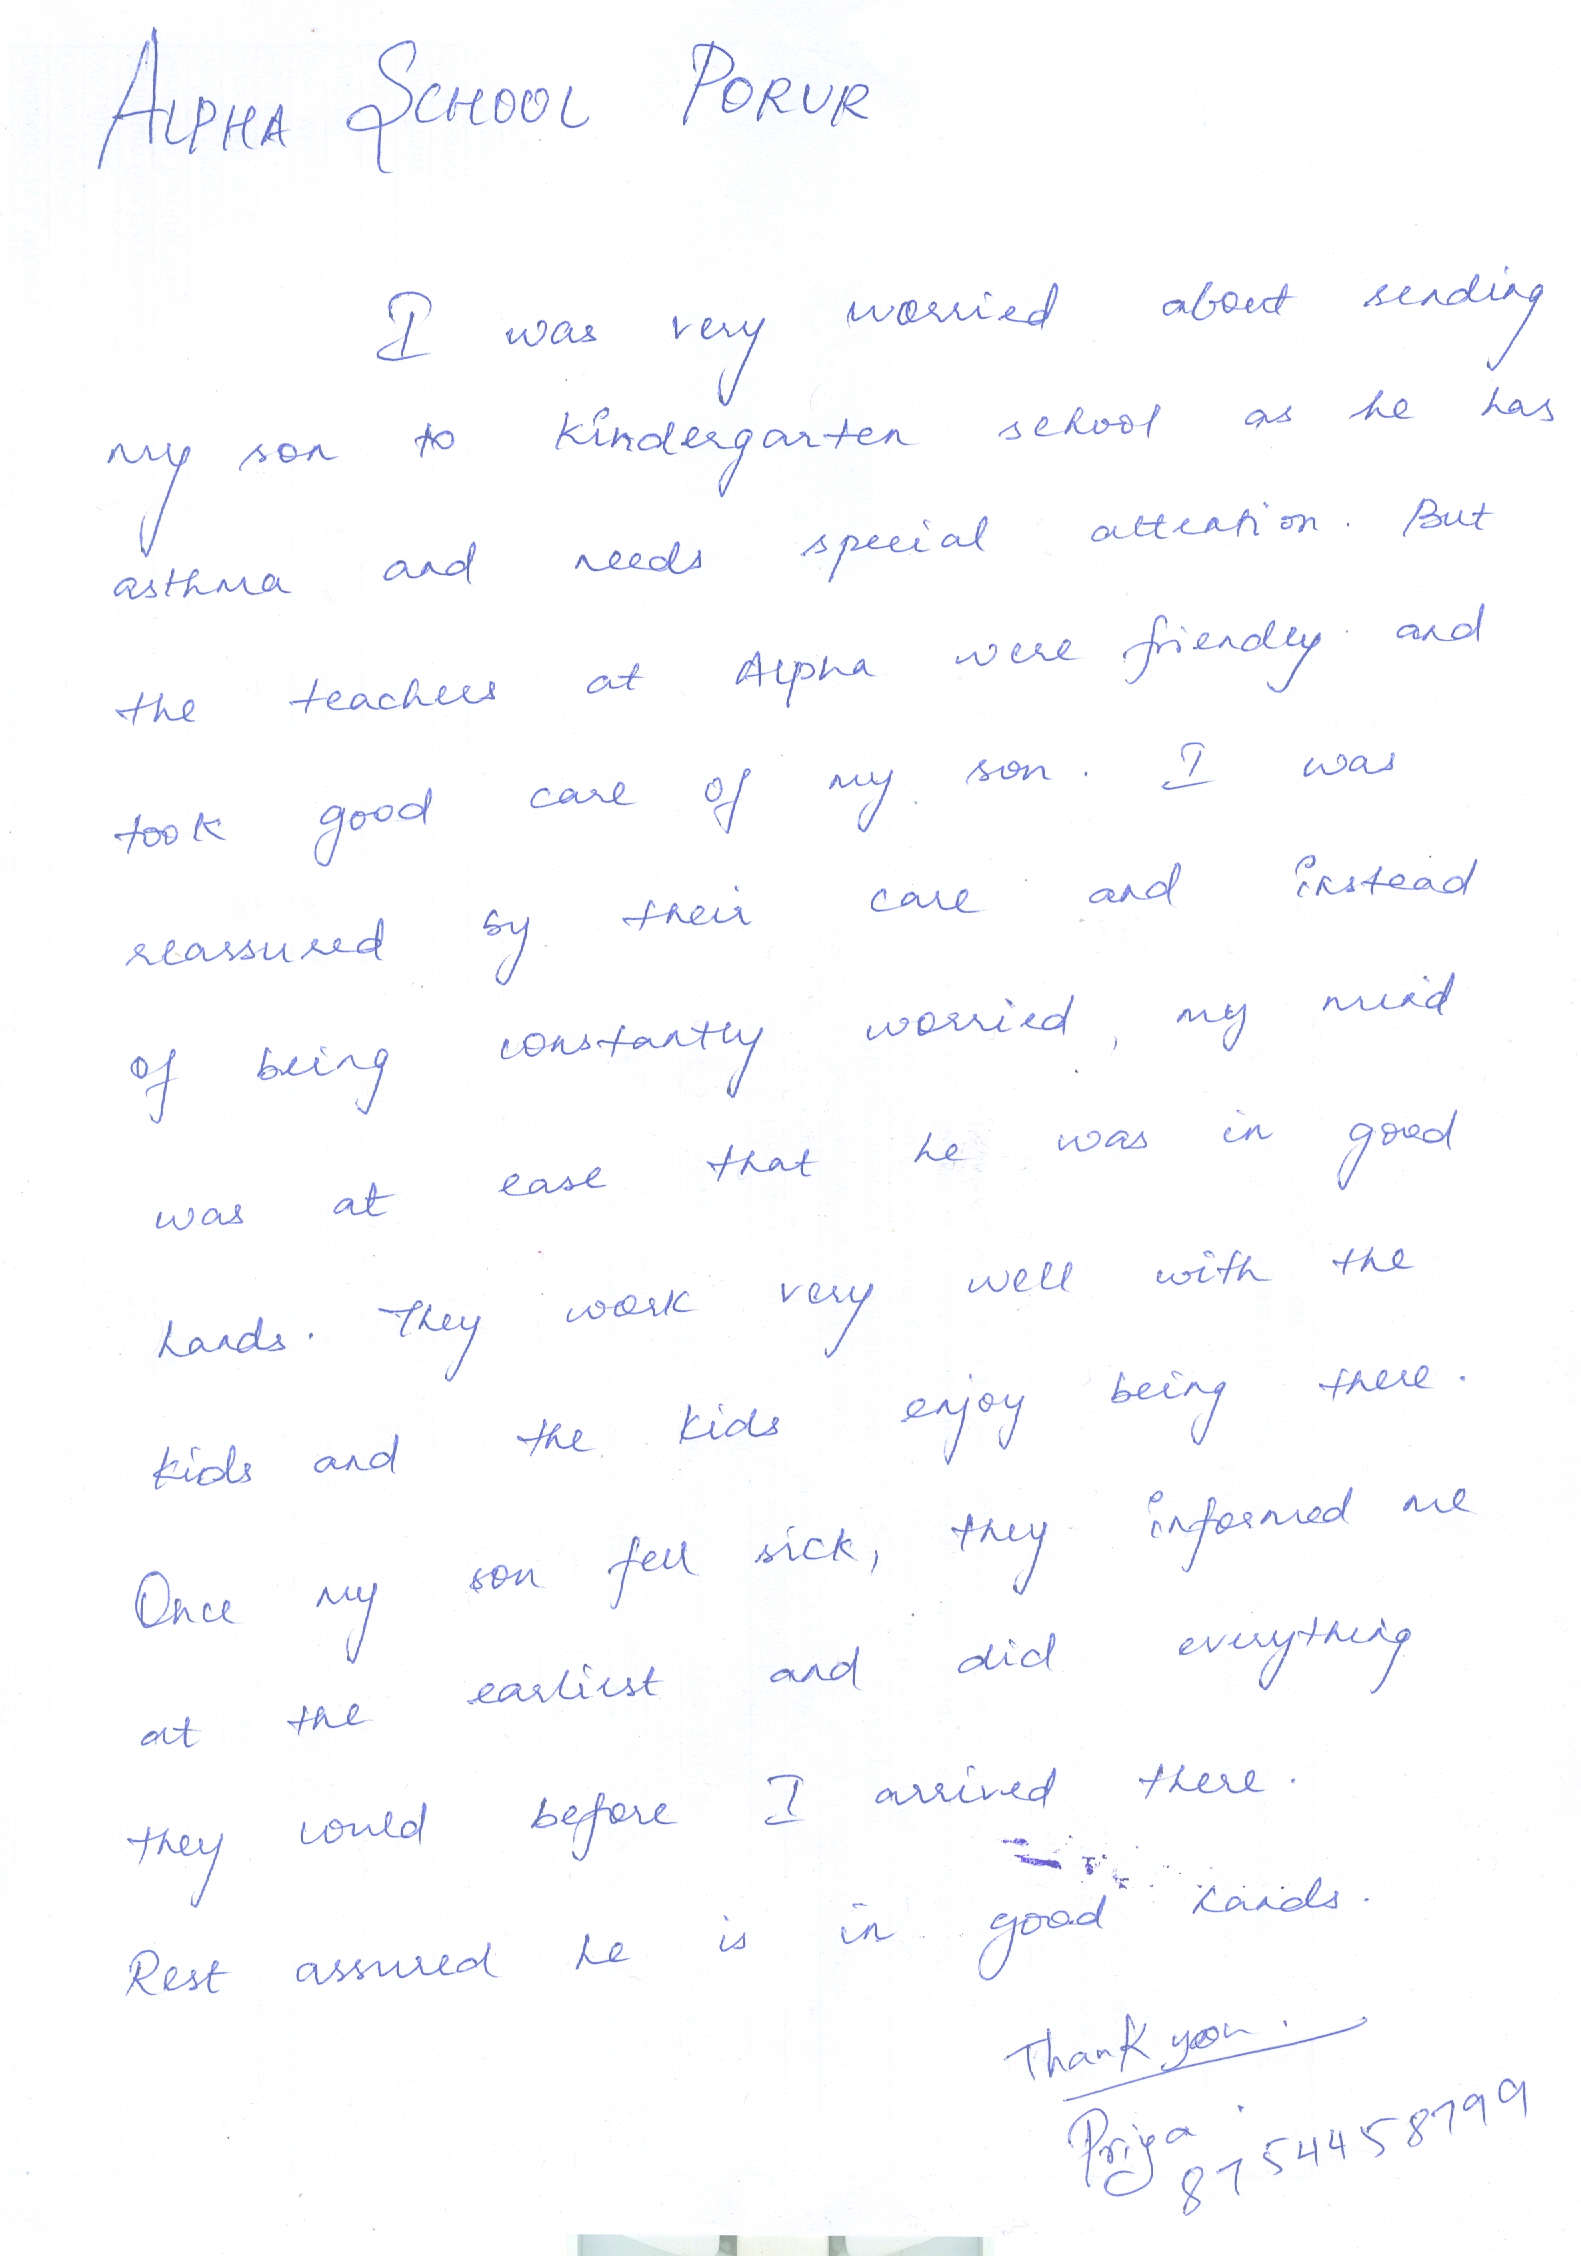 ALPHA SCHOOL PORUR
I was very worried about sending
my son to kindergarten school as he has
asthma and needs special attention. But
the teachers at Alpha were friendly and
took good care of my son. I was
reassured by their care and instead
of being constantly worried, my mind
was at ease that he was in good
hands. They work very well with the
kids and the kids enjoy being there.
Once my son fell sick, they informed me
at the earliest and did everything
they could before I arrived there.
Rest assured he is in good hands.
Thank you.
Priya.
8754458799